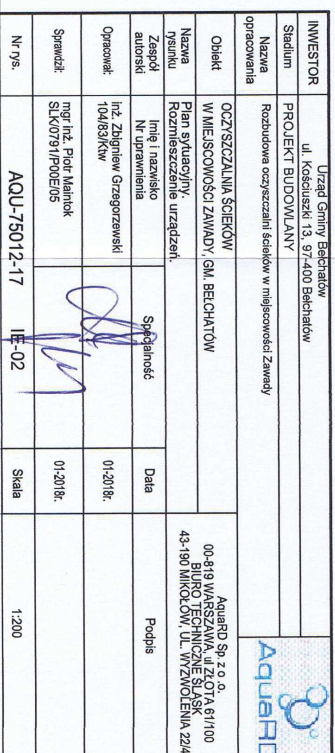 INWESTOR
Urząd Gminy Bełchatów
ul. Kościuszki 13, 97-400 Bełchatów
Stadium
PROJEKT BUDOWLANY
Nazwa
opracowania
Rozbudowa oczyszczalni ścieków w miejscowości Zawady
AquaRD
Obiekt
OCZYSZCZALNIA ŚCIEKÓW
W MIEJSCOWOŚCI ZAWADY, GM. BEŁCHATÓW
AquaRD Sp. z o .o.
00-819 WARSZAWA, ul ZŁOTA 61/100
BIURO TECHNICZNE ŚLĄSK
43-190 MIKOŁÓW, UL. WYZWOLENIA 22/4
Nazwa
rysunku
Plan sytuacyjny.
Rozmieszczenie urządzeń.
Zespół
autorski
Imię i nazwisko
Nr uprawnienia
Specjalność
Data
Podpis
Opracował:
inż. Zbigniew Grzegorzewski
104/83/Ktw
01-2018r.
Sprawdził:
mgr inż. Piotr Maintok
SLK/0791/P00E/05
01-2018r.
Nr rys.
AQU-75012-17 IE-02
Skala
1:200